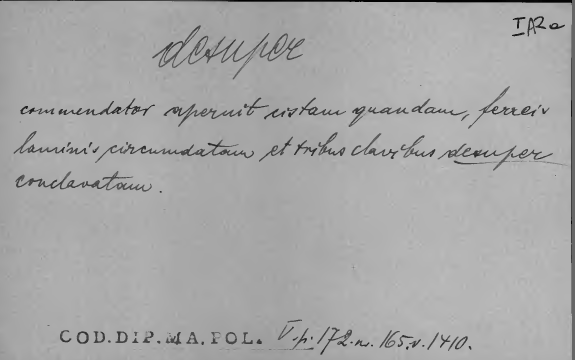 I A 2 a
desuper
commendator aperuit cistam quandam, ferreis
laminis circumdatam et tribus clavibus desuper
conclavatam.
COD. DIP. MA. POL. V. p. 172. n. 165. v. 1410.